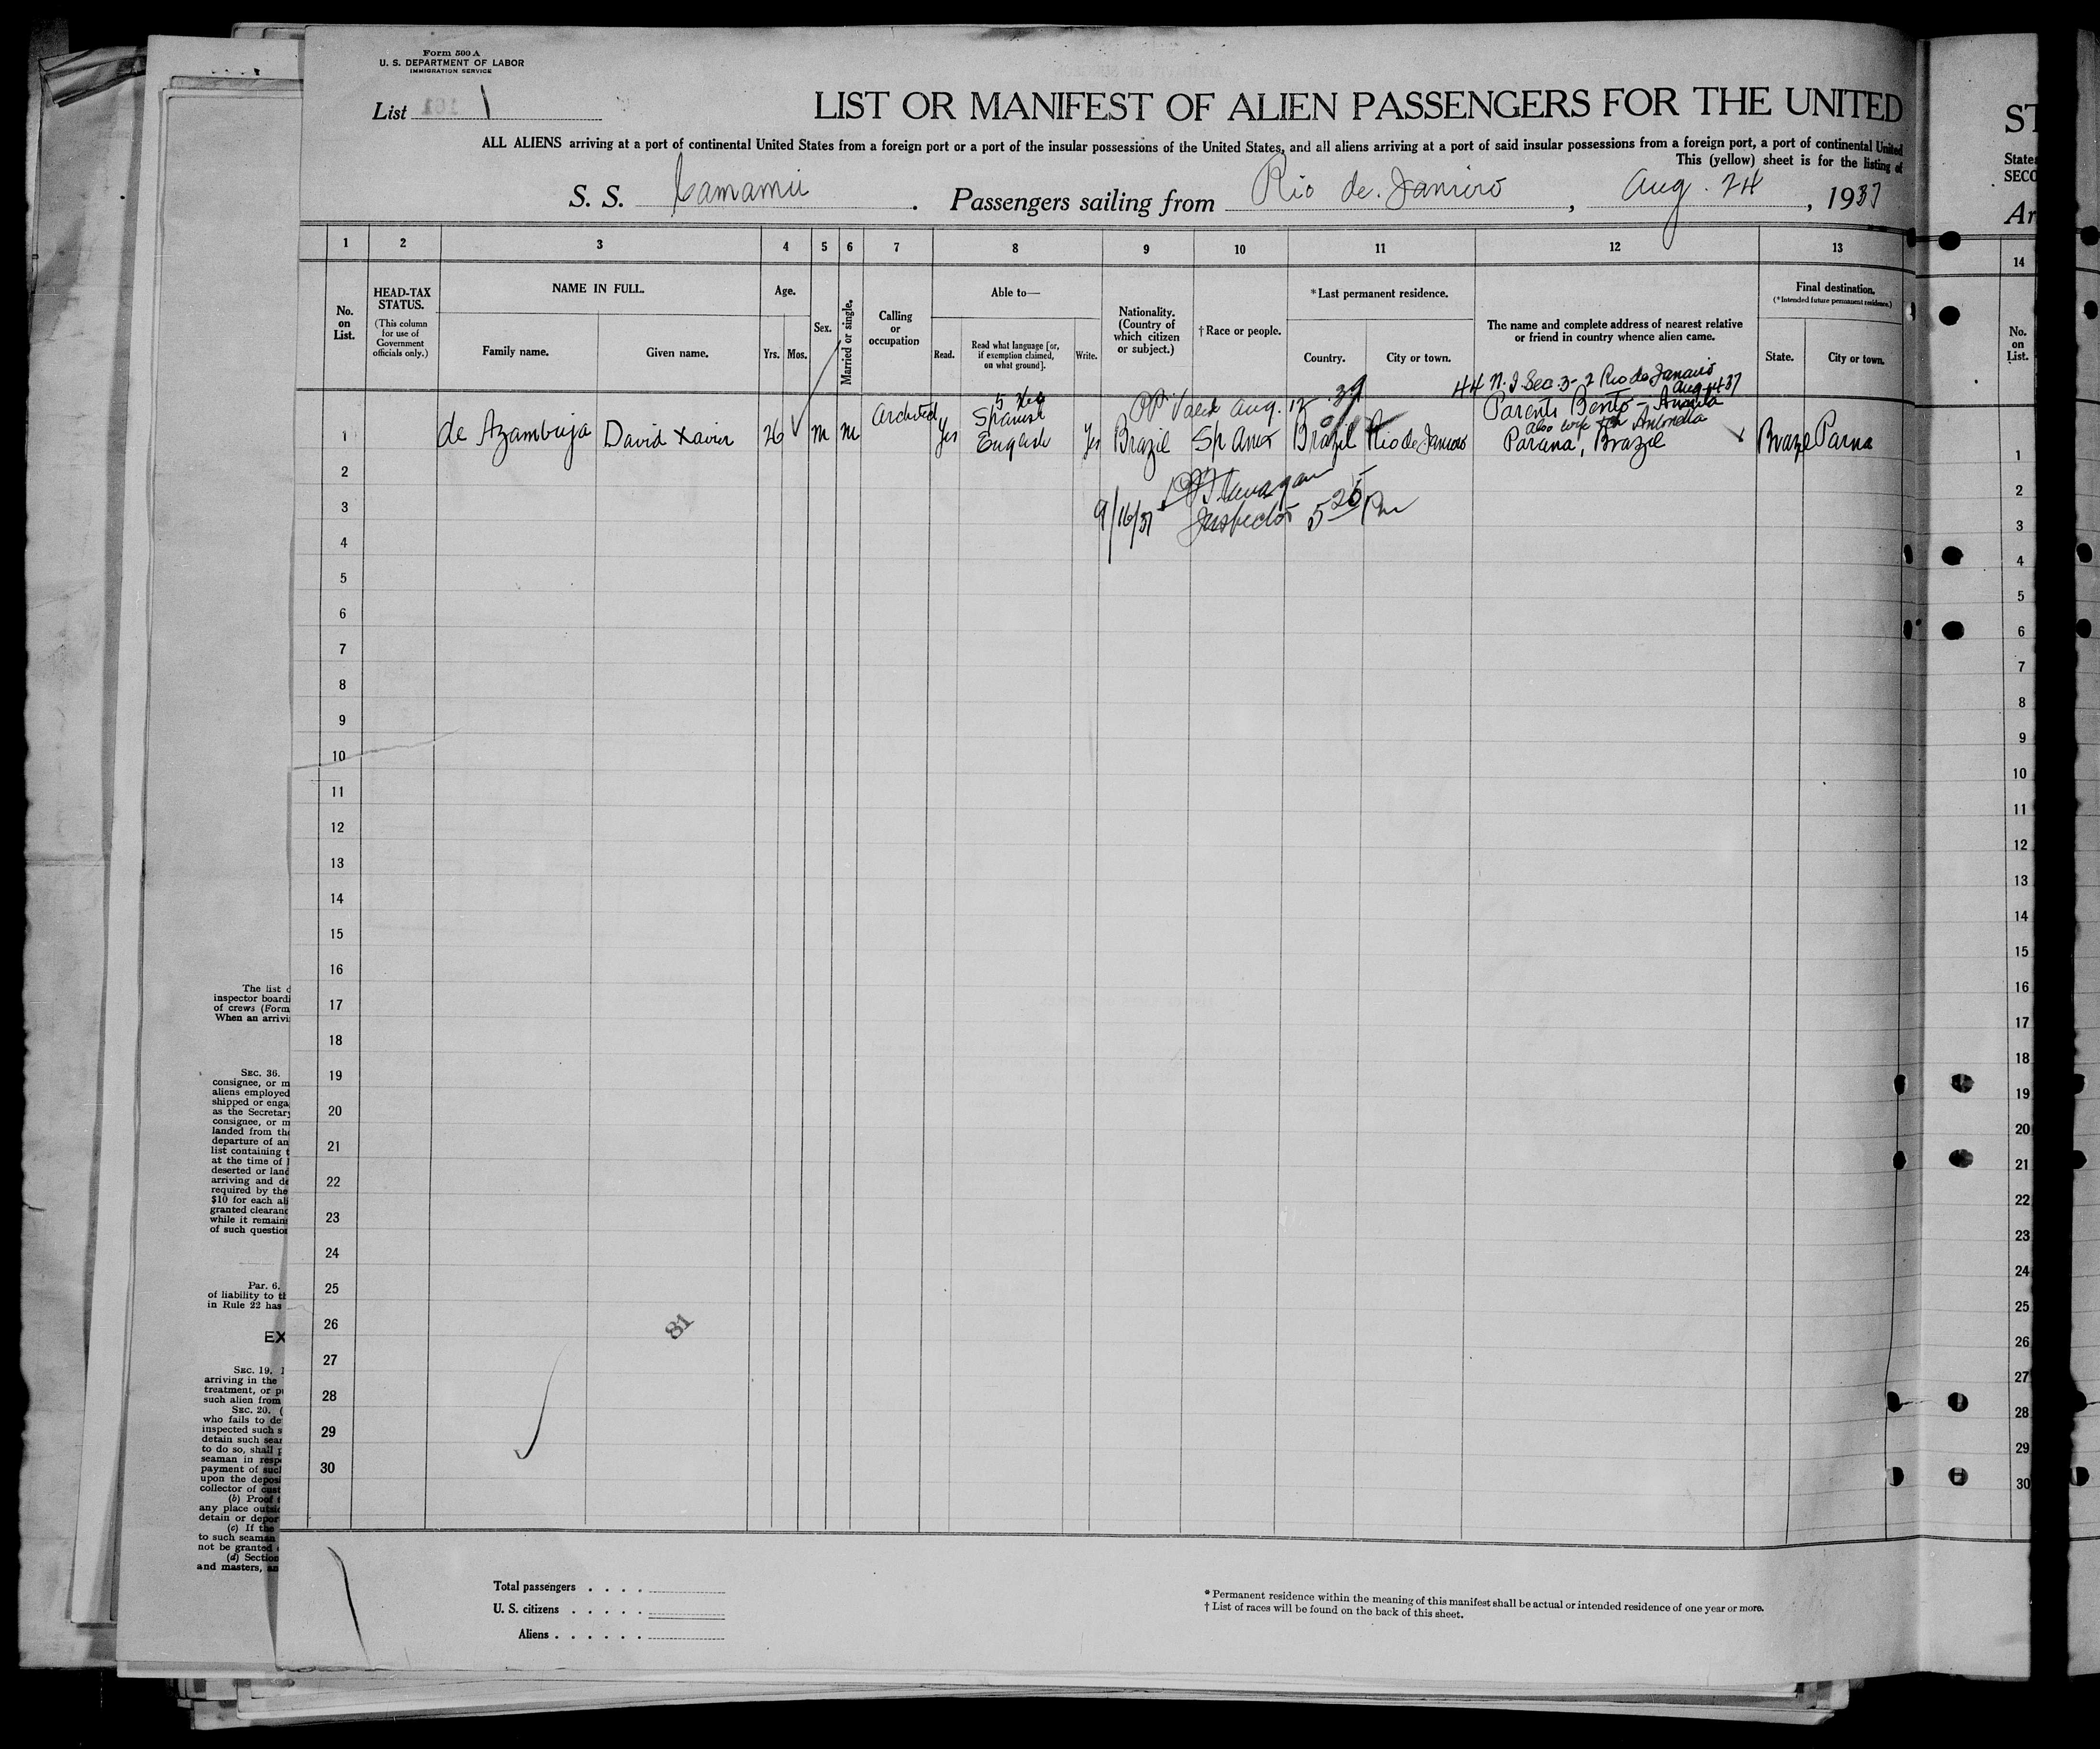 Form 500 A
U. S. DEPARTMENT OF LABOR
IMMIGRATION SERVICE
List 1
LIST OR MANIFEST OF ALIEN PASSENGERS FOR THE UNITED
ST
ALL ALIENS arriving at a port of continental United States from a foreign port or a port of the insular possessions of the United States, and all aliens arriving at a port of said insular possessions from a foreign port, a port of continental United
States
This (yellow) sheet is for the listing of
SECO
S. S. Camamu. Passengers sailing from Rio de Janeiro, Aug. 24, 1937
Ar
1 2 3 4 5 6 7 8 9 10 11 12 13
14
No. on List.
HEAD-TAX STATUS.
(This column for use of Government officials only.)
NAME IN FULL.
Family name. Given name.
Age.
Yrs. Mos.
Sex.
Married or single.
Calling or occupation
Able to—
Read. Read what language [or, if exemption claimed, on what ground]. Write.
Nationality. (Country of which citizen or subject.)
† Race or people.
*Last permanent residence.
Country. City or town.
The name and complete address of nearest relative or friend in country whence alien came.
Final destination.
(*Intended future permanent residence.)
State. City or town.
No. on List.
PP. Valid Aug. 12 39
44 N. I Sec. 3-2 Rio de Janeiro
Aug 14 37
Parents Bento -
also wife
1 de Azambuja David Xavier 26 m m Architect Yes Spanish English Yes Brazil Sp Amer Brazil Rio de Janeiro Parana, Brazil Brazil Parna
1
2
3
4
5
6
7
8
9
10
11
12
13
14
15
16
17
18
19
20
21
22
23
24
25
26
27
28
29
30
9/16/37 Inspector 5 25 Pm
81
1
2
3
4
5
6
7
8
9
10
11
12
13
14
15
16
17
18
19
20
21
22
23
24
25
26
27
28
29
30
The list
inspector board
of crews (Form
When an arriv
SEC. 36.
consignee, or m
aliens employed
shipped or enga
as the Secretar
consignee, or m
landed from the
departure of an
list containing
at the time of
deserted or land
arriving and de
required by the
$10 for each al
granted clearanc
while it remain
of such question
Par. 6.
of liability to t
in Rule 22 has
EX
SEC. 19.
arriving in the
treatment, or p
such alien from
SEC. 20. (
who fails to de
inspected such s
detain such sear
to do so, shall
seaman in resp
payment of such
upon the deposi
collector of cust
(b) Proof
any place outsi
detain or depor
(c) If the
to such seaman
not be granted
(d) Section
and masters, an
Total passengers
U. S. citizens
Aliens
* Permanent residence within the meaning of this manifest shall be actual or intended residence of one year or more.
† List of races will be found on the back of this sheet.